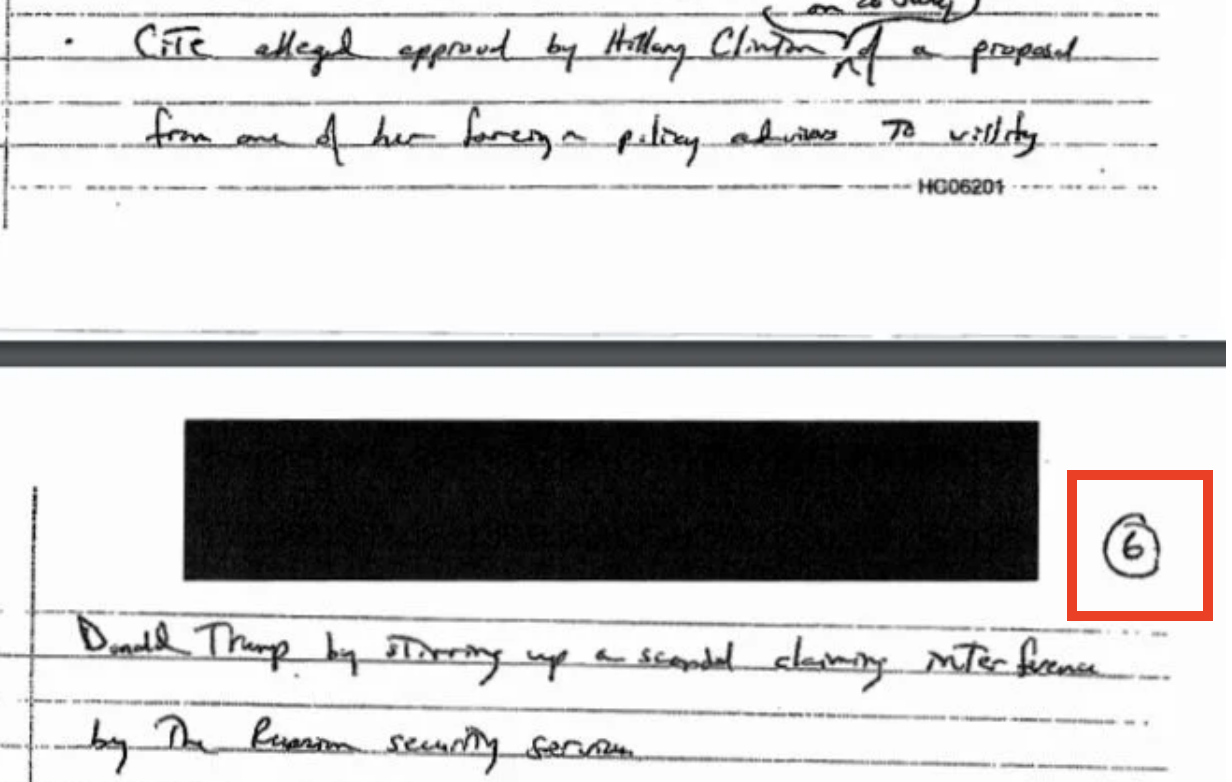 on 28 July
• CITE alleged approval by Hillary Clinton of a proposal
from one of her foreign policy advisors to villify
HC06201
6
Donald Trump by stirring up a scandal claiming interference
by the Russian security services